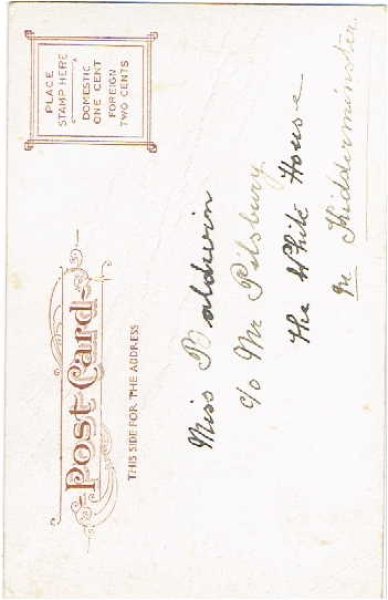 Post Card
THIS SIDE FOR THE ADDRESS
PLACE
STAMP HERE
DOMESTIC
ONE CENT
FOREIGN
TWO CENTS
Miss Baldwin
c/o Mr Pilsbury
The White House
nr Kidderminster.